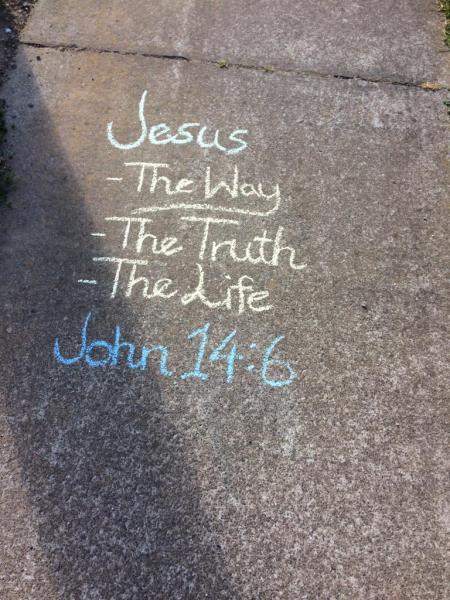 Jesus
- The Way
- The Truth
- The Life
John 14:6